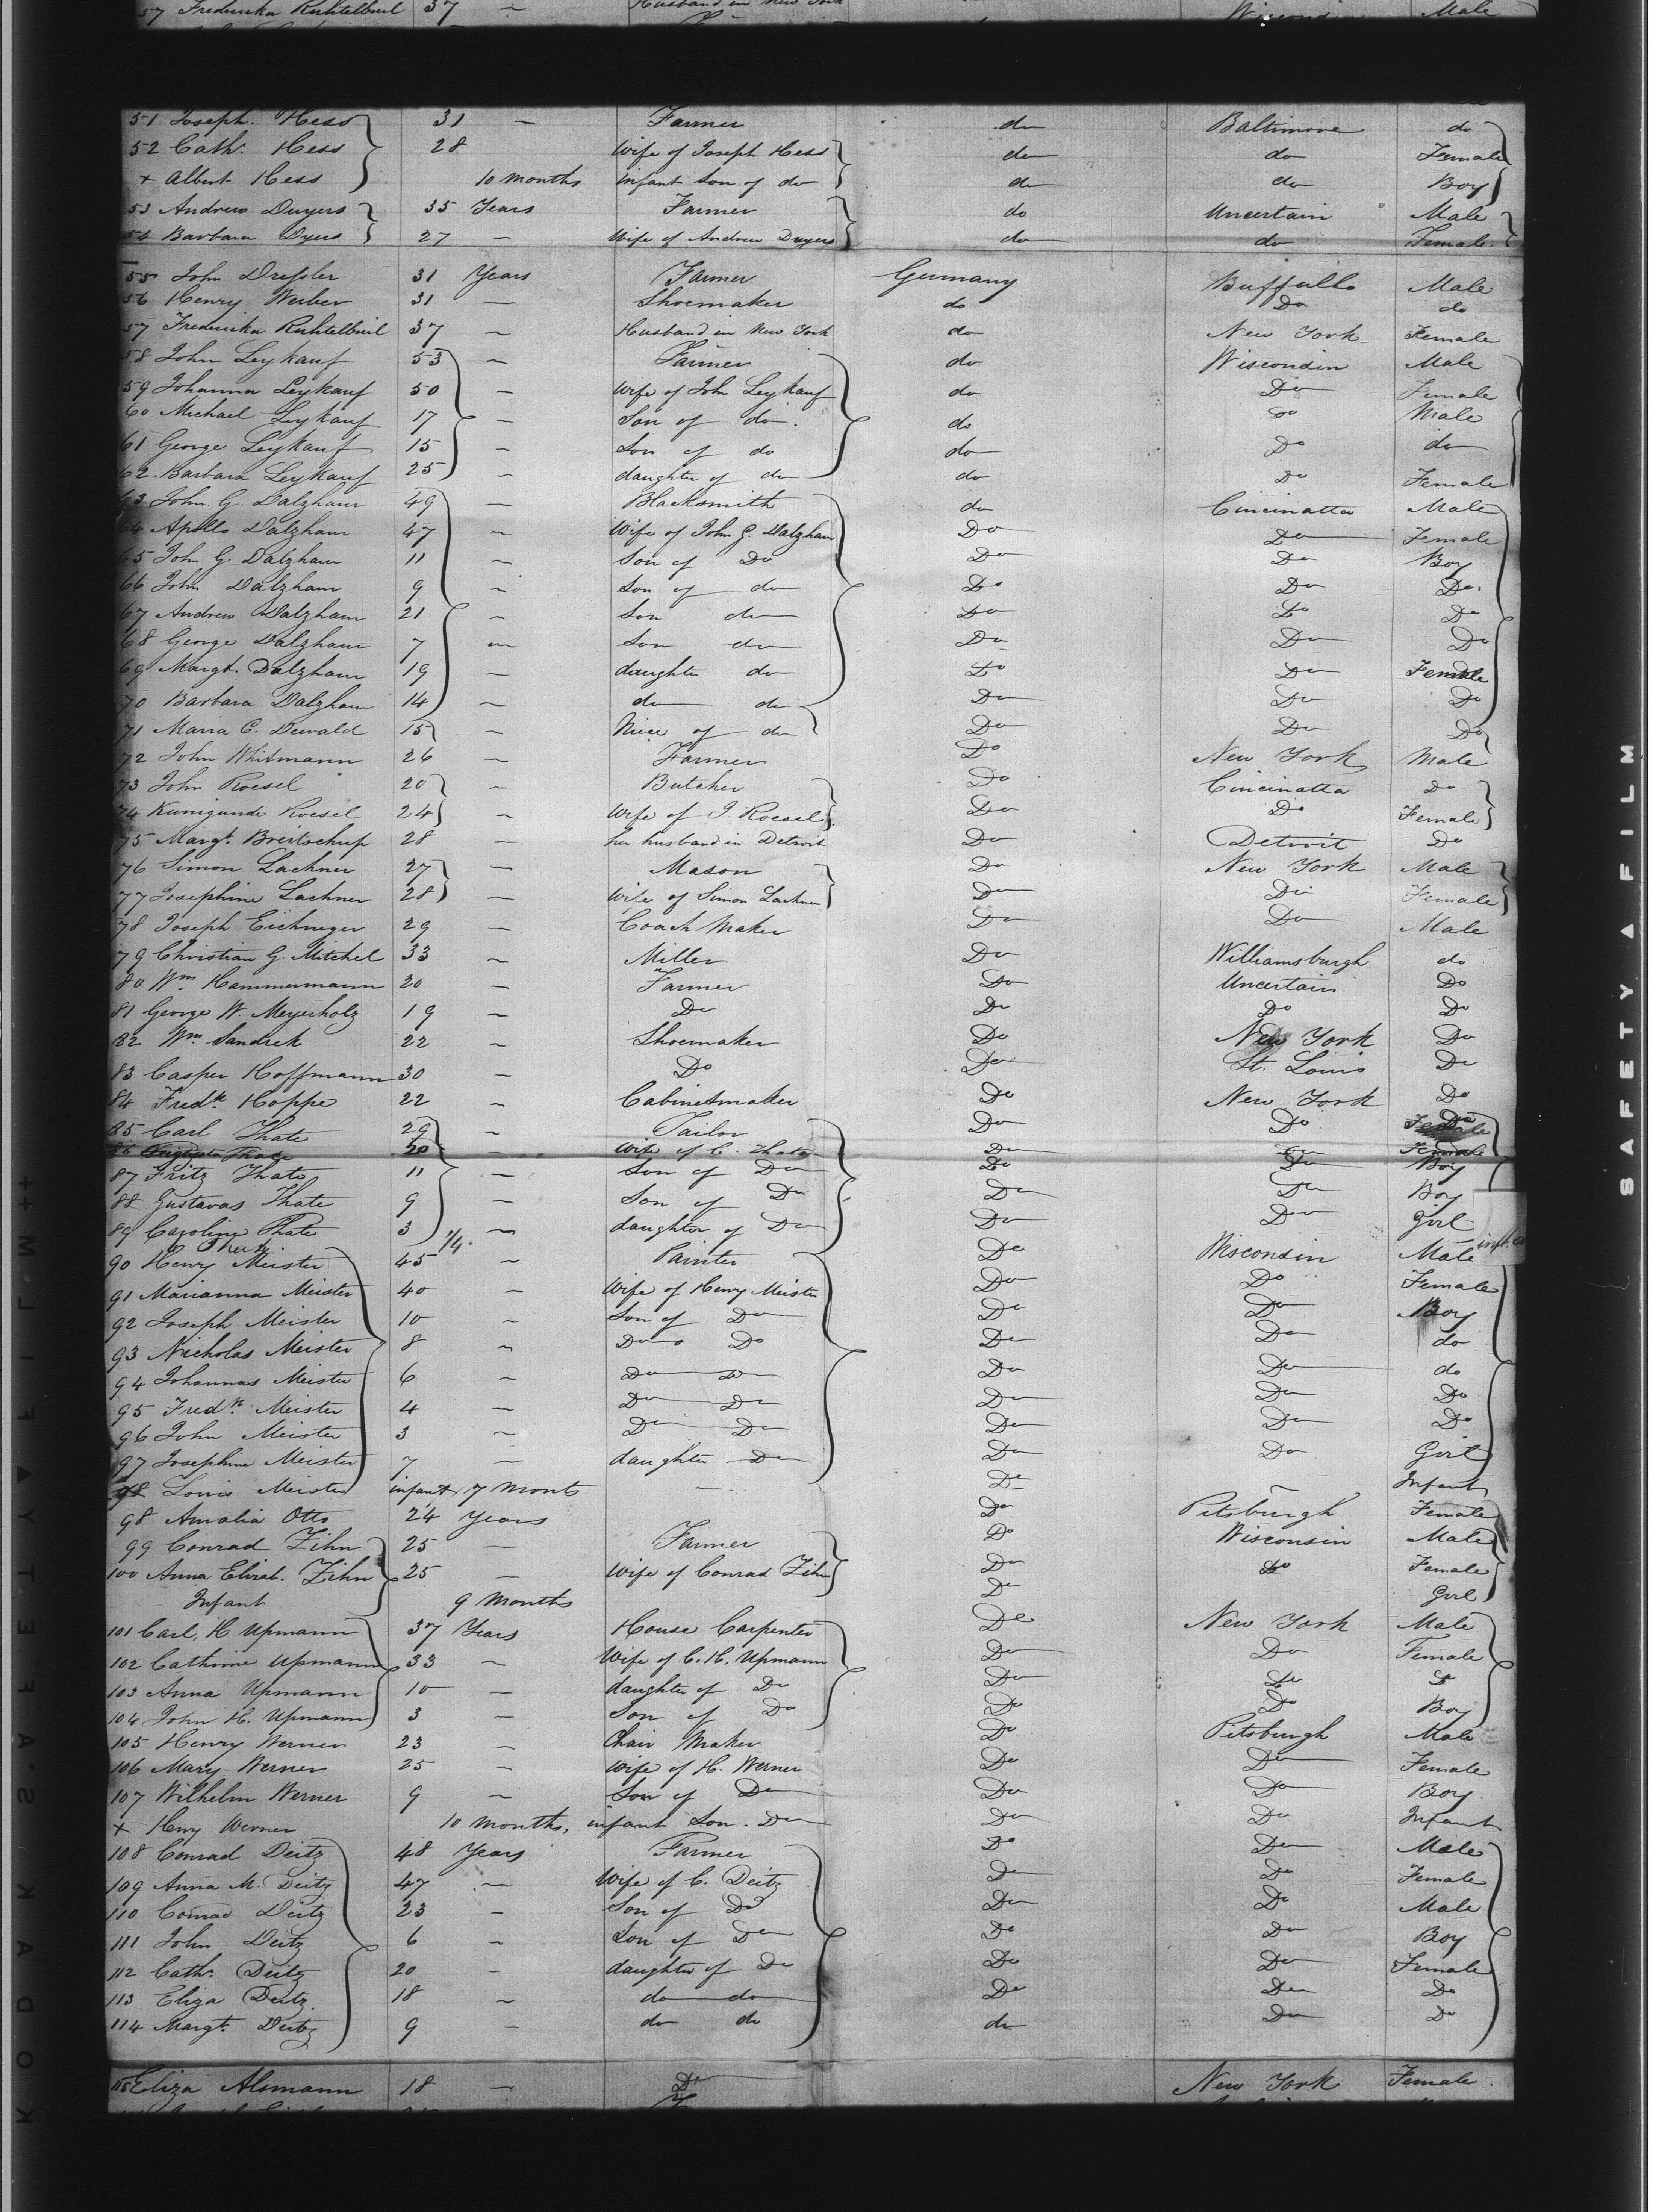 57 Frederika Ruhtelbeul 37 ~ Husband in New York Wisconsin Male
51 Joseph. Hess 31 ~ Farmer do Baltimore do
52 Cath. Hess 28 Wife of Joseph Hess do do Female
+ Albert Hess 10 Months infant son of do do do Boy
53 Andrew Duyers 35 Years Farmer do Uncertain Male
54 Barbara Dyers 27 ~ Wife of Andrew Duyers do do Female
55 John Dressler 31 Years Farmer Germany Buffullo Male
56 Henry Weiber 31 — Shoemaker do Do do
57 Frederika Ruhtelbeul 37 ~ Husband in New York do New York Female
58 John Leykauf 53 ~ Farmer do Wisconsin Male
59 Johanna Leykauf 50 — Wife of John Leykauf do Do Female
60 Michael Leykauf 17 — Son of do. do do Male
61 George Leykauf 15 ~ Son of do do Do do
62. Barbara Leykauf 25 ~ daughter of do do Do Female
63 John G. Dalzham 49 — Blacksmith do Cincinatta Male
64 Apollo Dalzham 47 ~ Wife of John G. Dalzham Do Do Female
65 John G. Dalzham 11 ~ Son of Do Do Do Boy
66 John Dalzham 9 ~ Son of do Do Do Do.
67 Andrew Dalzham 21 ~ Son do Do Do Do
68 George Dalzham 7 ~ Son do Do Do Do
69 Margt. Dalzham 19 — daughte do Do Do Female
70 Barbara Dalzham 14 — do do Do Do Do
71 Maria C. Dewald 15 ~ Niece of do Do Do Do
72 John Whitmann 26 ~ Farmer Do New York Male
73 John Roesel 20 ~ Butcher Do Cincinatta Do
74 Kunigunde Roesel 24 ~ Wife of J. Roesel Do Do Female
75 Margt. Breitschup 28 — her husband in Detroit Do Detroit Do
76 Simon Lachner 27 — Mason Do New York Male
77 Josephine Lachner 28 — Wife of Simon Lachner Do Do Female
78 Joseph Eichneger 29 ~ Coach Maker Do Do Male
79 Christian G. Mitchel 33 ~ Miller Do Williamsburgh do
80 Wm. Hammermann 20 ~ Farmer Do Uncertain Do
81 George W. Meyerholz 19 ~ Do Do Do Do
82 Wm. Sandrek 22 ~ Shoemaker Do New York Do
83 Casper Hoffmann 30 ~ Do Do St. Louis Do
84 Fredk. Hoppe 22 ~ Cabinetmaker Do New York Do
85 Carl Thate 29 ~ Tailor Do Do Do
86 Thate 30 ~ Wife of C. Thate Do Do Female
87 Fritz Thate 11 — Son of Do Do Do Boy
88 Gustavas Thate 9 ~ Son of Do Do Do Boy
89 Caroline Thate 3 1/4. ~ daughter of Do Do Do Girl
90 Henry Meister 45 ~ Painter Do Wisconsin Male
91 Marianna Meister 40 ~ Wife of Henry Meister Do Do Female
92 Joseph Meister 10 ~ Son of Do Do Do Boy
93 Nicholas Meister 8 ~ Do Do Do Do do
94 Johannas Meister 6 ~ Do Do Do Do do
95 Fredk. Meister 4 ~ Do Do Do Do Do
96 John Meister 3 ~ Do Do Do Do Do
97 Josephine Meister 7 — daughter Do Do Do Girl
98 Louis Meister infant 7 Monts — Do — Infant
98 Amalia Otto 24 Years Do Pitsburgh Female
99 Conrad Zihn 25 — Farmer Do Wisconsin Male
100 Anna Elizab. Zihn 25 — Wife of Conrad Zihn Do Do Female
Infant 9 Months Do Girl
101 Carl, H Upmann 37 Years House Carpenter Do New York Male
102 Cathrine Upmann 33 ~ Wife of C. H. Upmann Do Do Female
103 Anna Upmann 10 — daughter of Do Do Do Do
104 John H. Upmann 3 — Son of Do Do Do Boy
105 Henry Werner 23 ~ Chair Maker Do Pitsburgh Male
106 Mary Werner 25 ~ Wife of H. Werner Do Do Female
107 Wilhelm Werner 9 ~ Son of Do Do Do Boy
+ Heny Werner 10 Months, infant Son. Do Do Do Infant
108 Conrad Deitz 48 Years Farmer Do Do Male
109 Anna M. Deitz 47 ~ Wife of C. Deitz Do Do Female
110 Conrad Deitz 23 ~ Son of Do Do Do Male
111 John Deitz 6 ~ Son of Do Do Do Boy
112 Cath. Deitz 20 ~ daughter of Do Do Do Female
113 Eliza Deitz. 18 ~ do do Do Do Do
114 Margt. Deitz 9 ~ do do do Do Do
115 Eliza Alsmann 18 ~ Do New York Female.
SAFETY FILM
KODAK